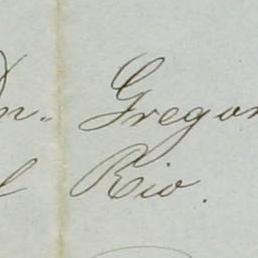 Dn. Gregor
l Rio.